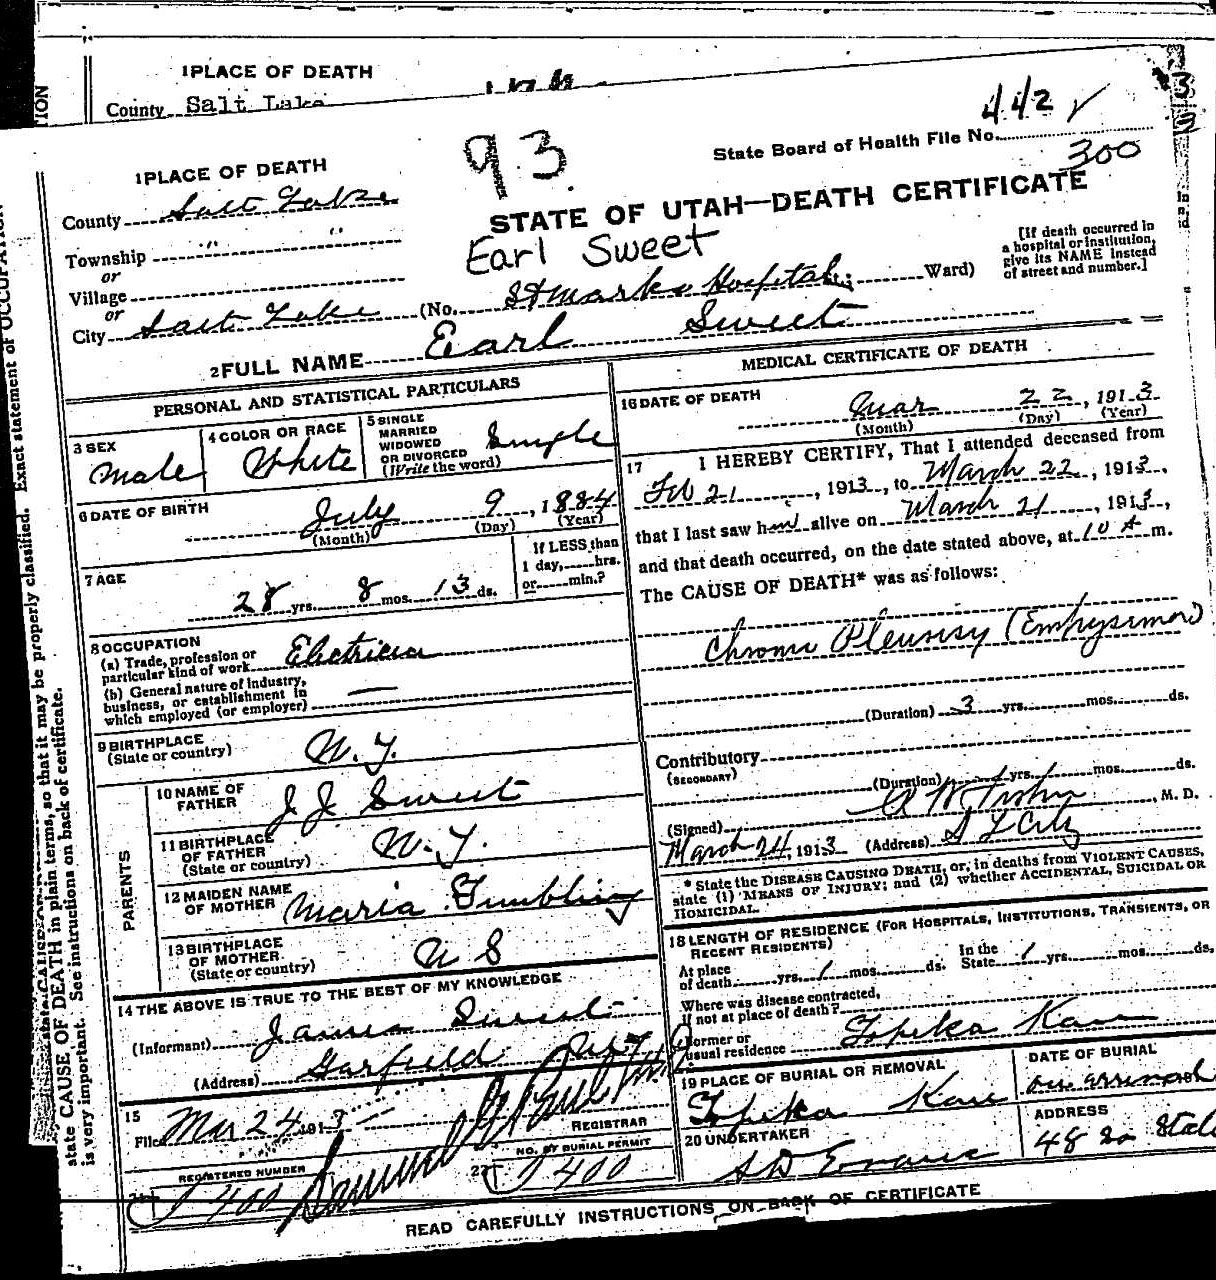 1 PLACE OF DEATH
County Salt Lake
93
442 ✓
State Board of Health File No.
300
1 PLACE OF DEATH
County Salt Lake
STATE OF UTAH—DEATH CERTIFICATE
Township " "
Earl Sweet
or
Village
[If death occurred in a hospital or institution, give its NAME instead of street and number.]
or
City Salt Lake (No. St Marks Hospital; Ward)
2 FULL NAME Earl Sweet
PERSONAL AND STATISTICAL PARTICULARS
3 SEX
Male
4 COLOR OR RACE
White
5 SINGLE
MARRIED
WIDOWED
OR DIVORCED
(Write the word)
Single
6 DATE OF BIRTH
July 9, 1884
(Month) (Day) (Year)
7 AGE
28 yrs. 8 mos. 13 ds.
If LESS than
1 day, hrs.
or min.?
8 OCCUPATION
(a) Trade, profession or
particular kind of work Electrician
(b) General nature of industry,
business, or establishment in
which employed (or employer) —
9 BIRTHPLACE
(State or country) N.Y.
PARENTS
10 NAME OF
FATHER J J Sweet
11 BIRTHPLACE
OF FATHER
(State or country) N.Y.
12 MAIDEN NAME
OF MOTHER Maria
13 BIRTHPLACE
OF MOTHER
(State or country) U S
14 THE ABOVE IS TRUE TO THE BEST OF MY KNOWLEDGE
(Informant) James Sweet
(Address) Garfield
15
Filed Mar 24 1913
REGISTRAR
REGISTERED NUMBER
21 400
NO. OF BURIAL PERMIT
22 400
MEDICAL CERTIFICATE OF DEATH
16 DATE OF DEATH
Mar 22, 1913
(Month) (Day) (Year)
17 I HEREBY CERTIFY, That I attended deceased from
Feb 21, 1913, to March 22, 1913,
that I last saw him alive on March 21, 1913,
and that death occurred, on the date stated above, at 10 A m.
The CAUSE OF DEATH* was as follows:
Chronic Pleurisy (Emphysema)
(Duration) 3 yrs. mos. ds.
Contributory
(SECONDARY)
(Duration) yrs. mos. ds.
(Signed) , M. D.
March 24, 1913 (Address) S L City
* State the DISEASE CAUSING DEATH, or, in deaths from VIOLENT CAUSES,
state (1) MEANS OF INJURY; and (2) whether ACCIDENTAL, SUICIDAL OR
HOMICIDAL.
18 LENGTH OF RESIDENCE (FOR HOSPITALS, INSTITUTIONS, TRANSIENTS, OR
RECENT RESIDENTS)
At place
of death yrs. 1 mos. ds.
In the
State 1 yrs. mos. ds.
Where was disease contracted,
if not at place of death?
Former or
usual residence Topeka Kan
19 PLACE OF BURIAL OR REMOVAL
Topeka Kan
DATE OF BURIAL
on arrival
20 UNDERTAKER
S D Evans
ADDRESS
48 So State
READ CAREFULLY INSTRUCTIONS ON BACK OF CERTIFICATE
Exact statement of OCCUPATION
so that it may be properly classified.
state CAUSE OF DEATH in plain terms,
is very important. See instructions on back of certificate.